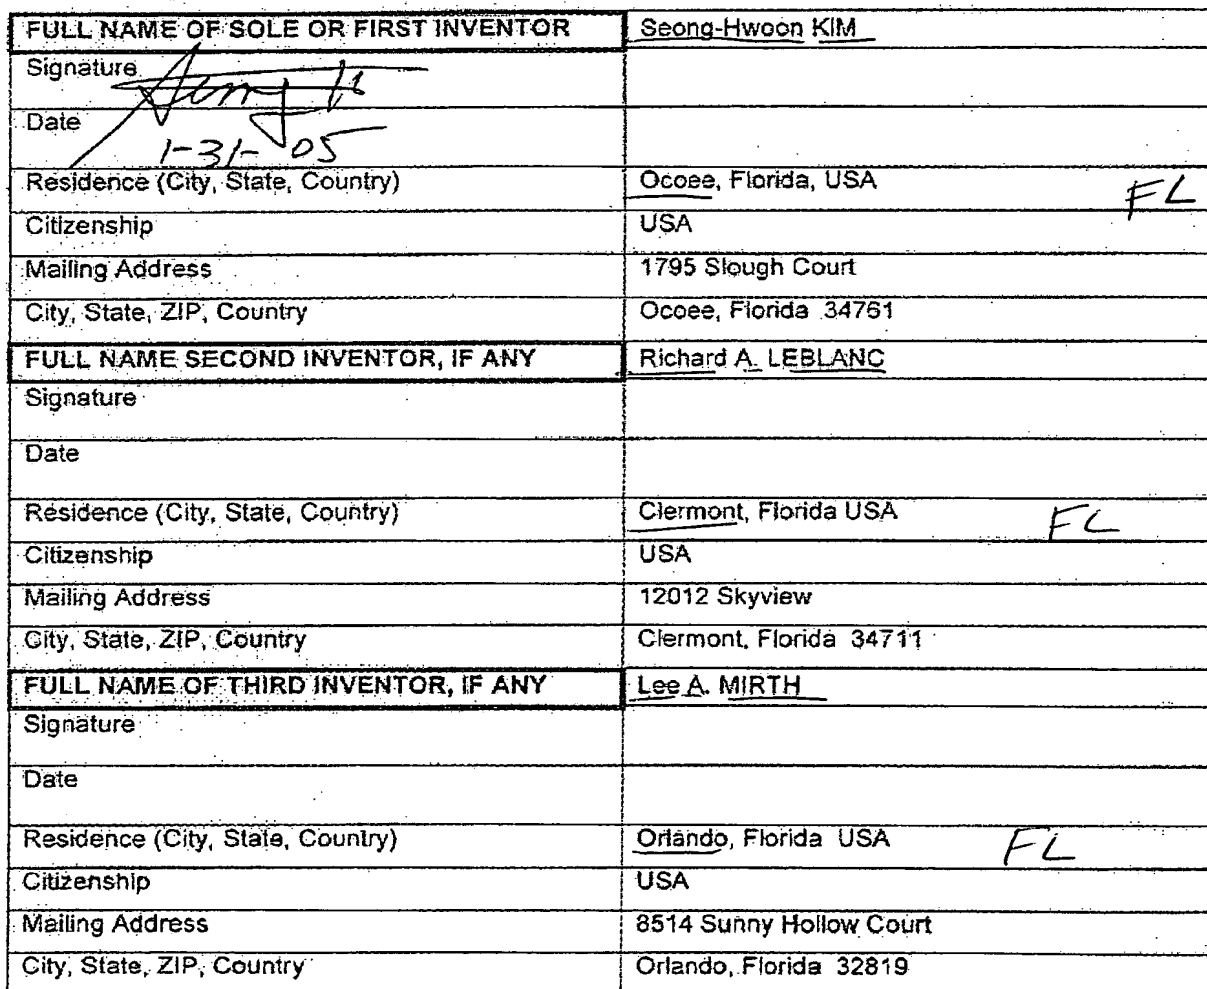 FULL NAME OF SOLE OR FIRST INVENTOR Seong-Hwoon KIM
Signature
Date
1-31-05
Residence (City, State, Country) Ocoee, Florida, USA FL
Citizenship USA
Mailing Address 1795 Slough Court
City, State, ZIP, Country Ocoee, Florida 34761
FULL NAME SECOND INVENTOR, IF ANY Richard A. LEBLANC
Signature
Date
Residence (City, State, Country) Clermont, Florida USA FL
Citizenship USA
Mailing Address 12012 Skyview
City, State, ZIP, Country Clermont, Florida 34711
FULL NAME OF THIRD INVENTOR, IF ANY Lee A. MIRTH
Signature
Date
Residence (City, State, Country) Orlando, Florida USA FL
Citizenship USA
Mailing Address 8514 Sunny Hollow Court
City, State, ZIP, Country Orlando, Florida 32819